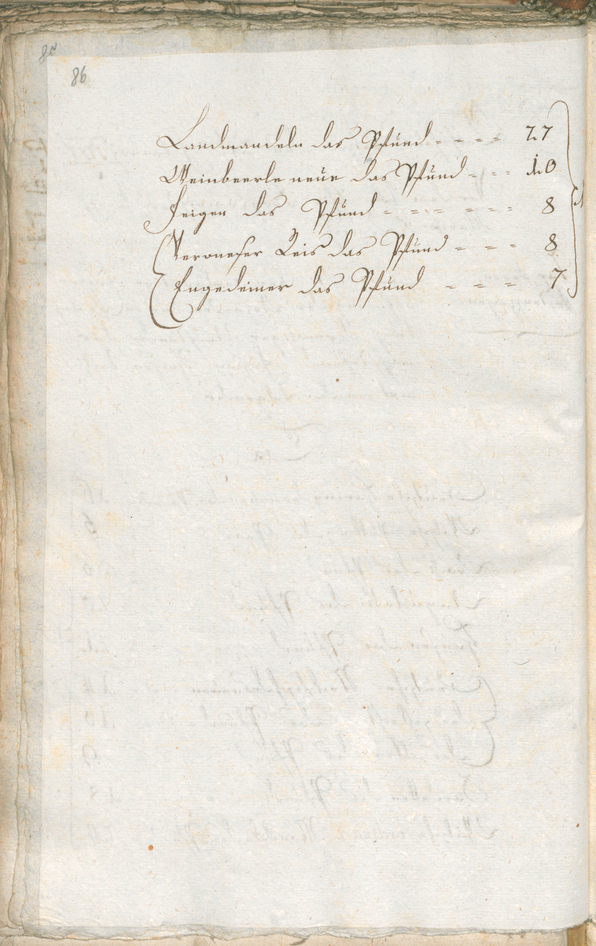 86
Landmandeln das Pfund - - - - 27
Weinbeerle neue das Pfund - - - 10
Feigen das Pfund - - - - - - 8
Veroneser Reis das Pfund - - - 8
Engedeiner das Pfund - - - 7.